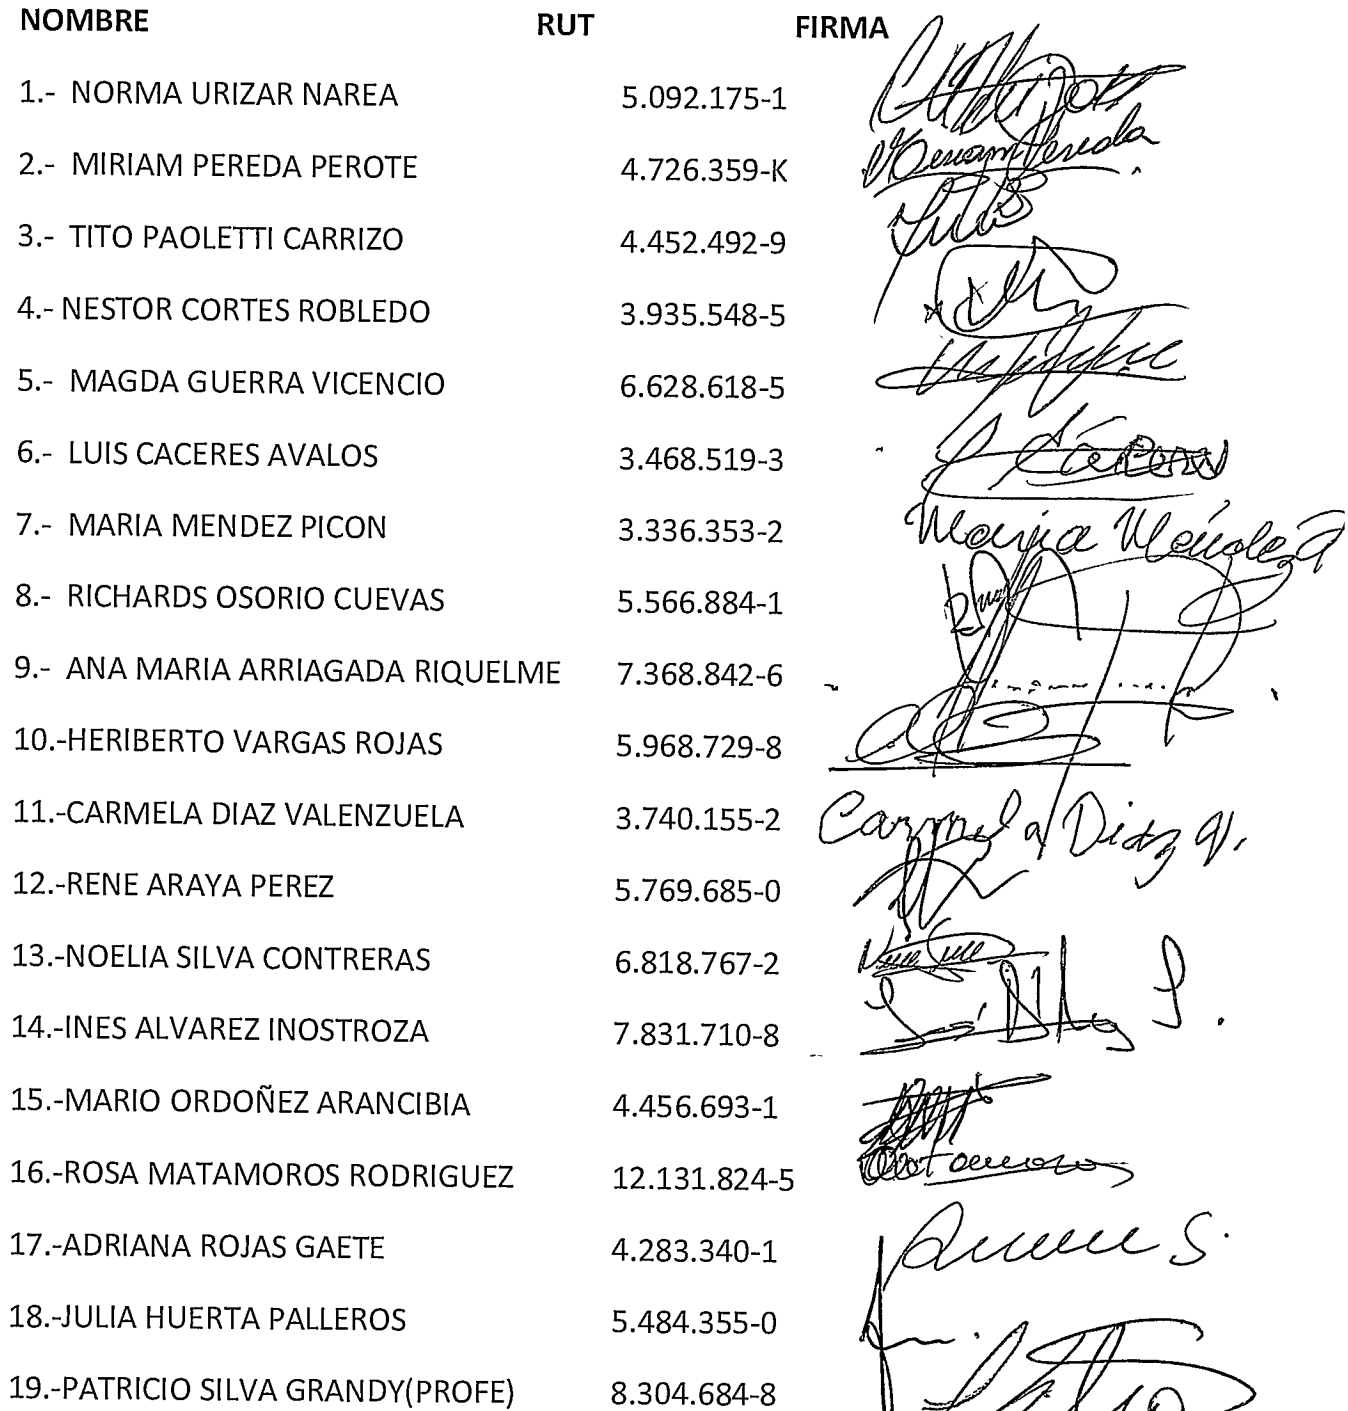 NOMBRE RUT FIRMA
1.- NORMA URIZAR NAREA 5.092.175-1
2.- MIRIAM PEREDA PEROTE 4.726.359-K Miriam Pereda
3.- TITO PAOLETTI CARRIZO 4.452.492-9
4.- NESTOR CORTES ROBLEDO 3.935.548-5
5.- MAGDA GUERRA VICENCIO 6.628.618-5
6.- LUIS CACERES AVALOS 3.468.519-3 Cáceres
7.- MARIA MENDEZ PICON 3.336.353-2 Maria Méndez P
8.- RICHARDS OSORIO CUEVAS 5.566.884-1
9.- ANA MARIA ARRIAGADA RIQUELME 7.368.842-6
10.-HERIBERTO VARGAS ROJAS 5.968.729-8
11.-CARMELA DIAZ VALENZUELA 3.740.155-2 Carmela Diaz V.
12.-RENE ARAYA PEREZ 5.769.685-0
13.-NOELIA SILVA CONTRERAS 6.818.767-2
14.-INES ALVAREZ INOSTROZA 7.831.710-8
15.-MARIO ORDOÑEZ ARANCIBIA 4.456.693-1
16.-ROSA MATAMOROS RODRIGUEZ 12.131.824-5 Matamoros
17.-ADRIANA ROJAS GAETE 4.283.340-1
18.-JULIA HUERTA PALLEROS 5.484.355-0
19.-PATRICIO SILVA GRANDY(PROFE) 8.304.684-8